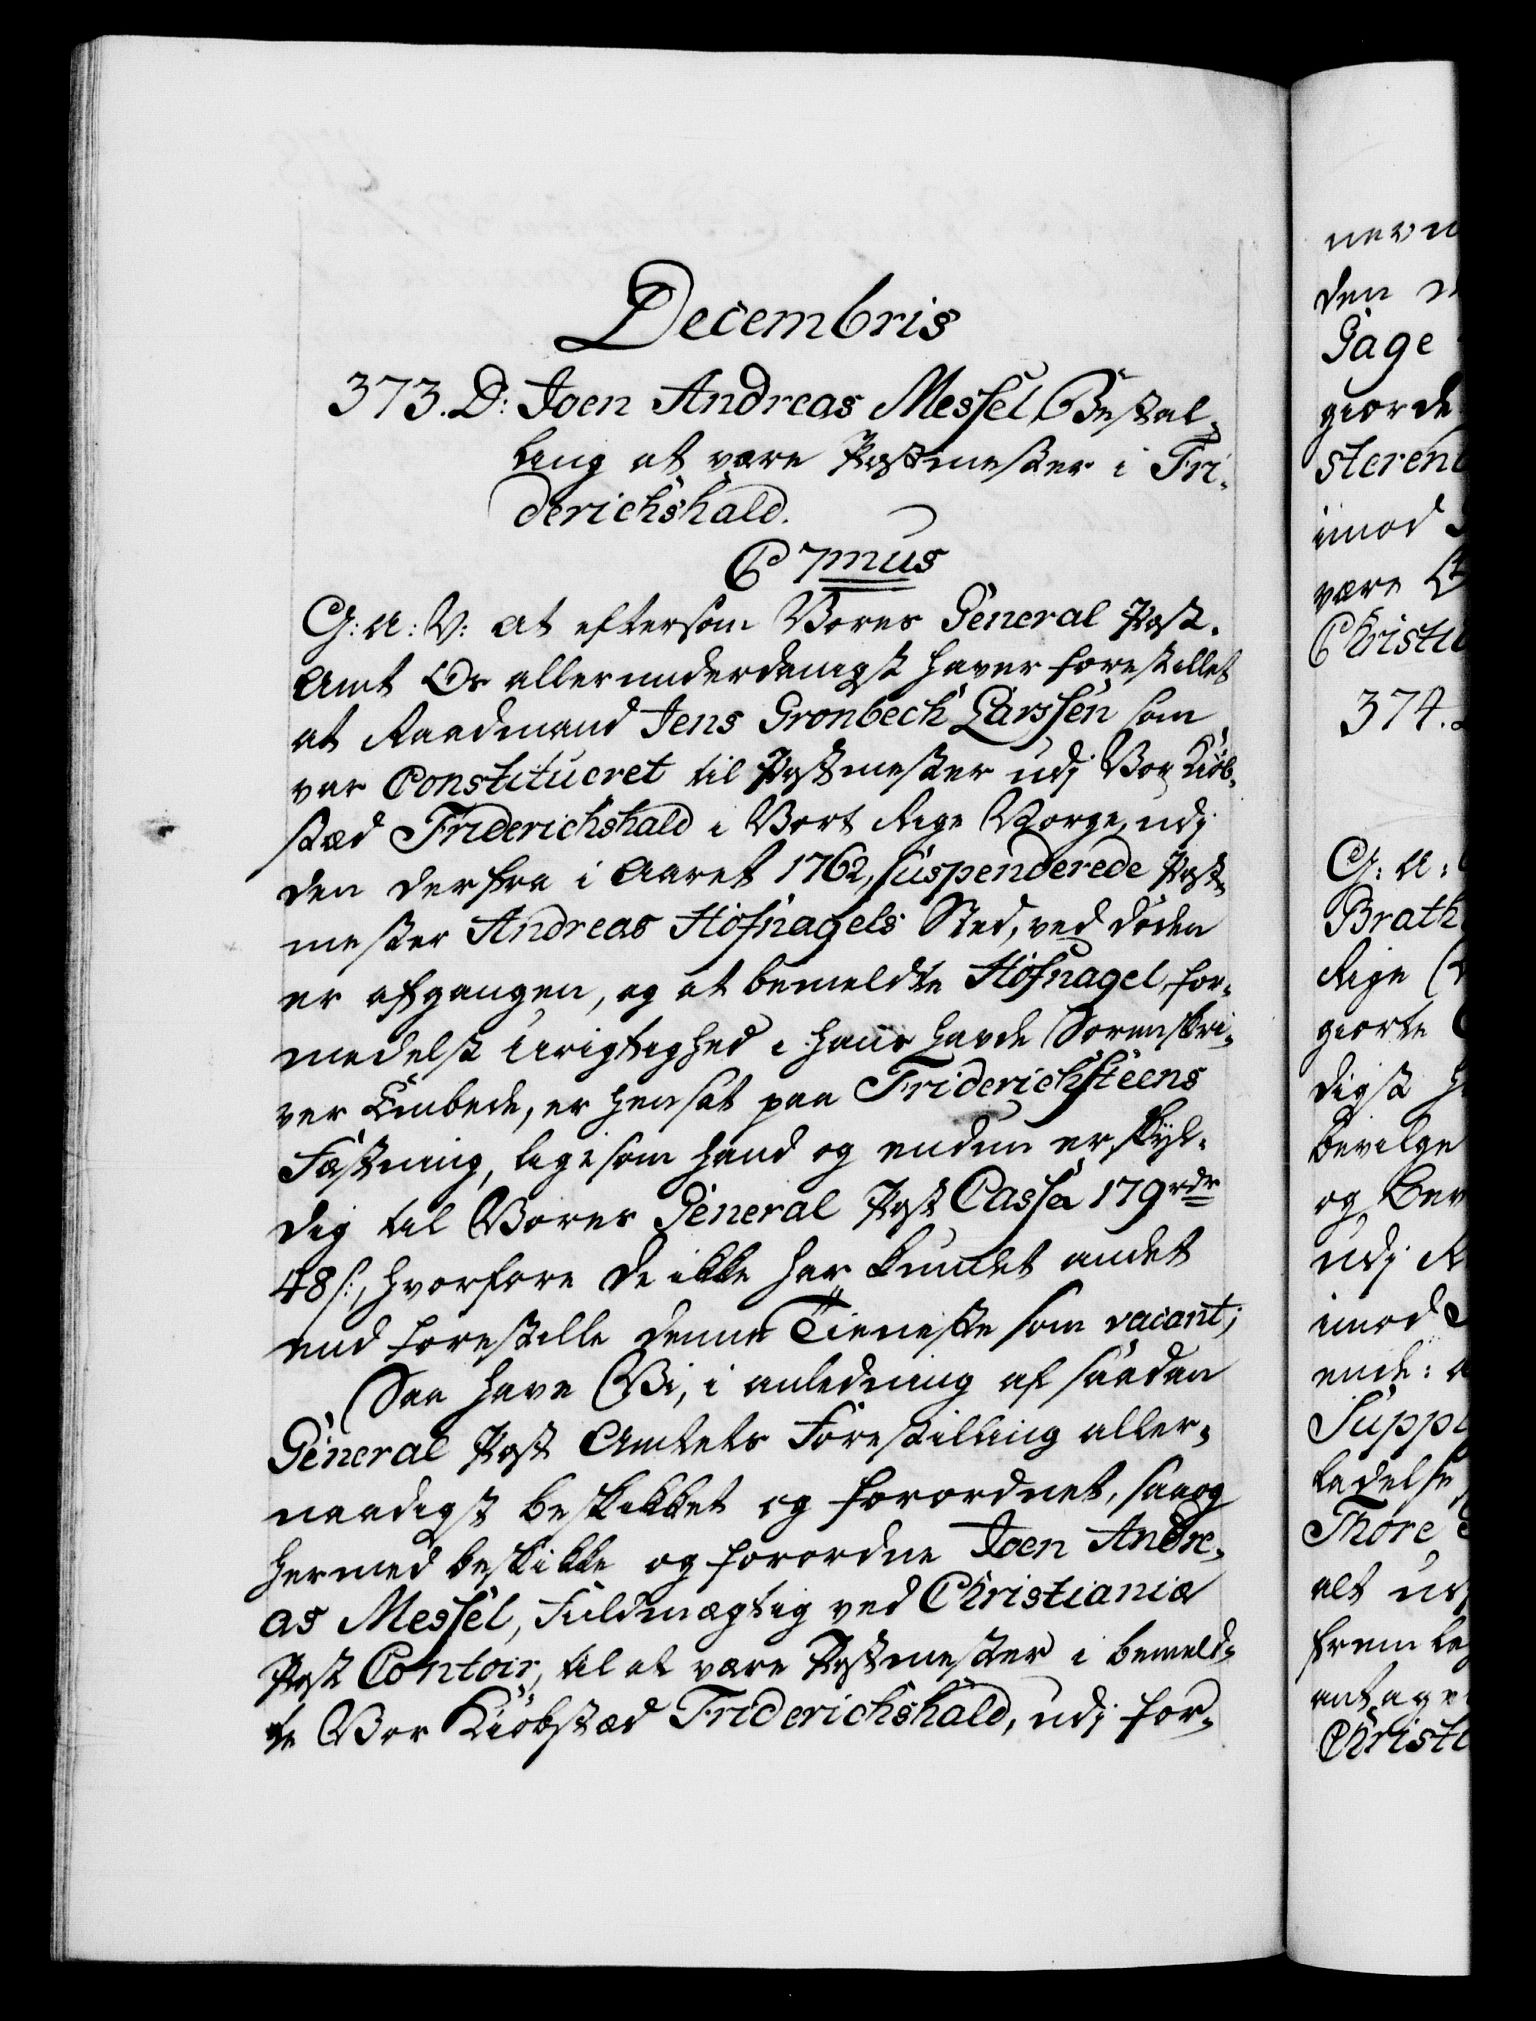 Decembris
373. D: Joen Andreas Messel, Bestal-
ling at være Postmester i Fri-
derichshald.
C 7mus
G: A: V: at eftersom Vores General Post-
Amt Os allerunderdanigst haver forestillet
at Raadmand Jens Grønbech Larssen som
var Constitueret til Postmester udj Vor Kiøb-
stæd Friderichshald i Vort Rige Norge, udj
den derfra i Aaret 1762, suspenderede Post-
mester Andreas Hofnagels Sted, ved døden
er afgangen, og at bemeldte Hofnagel, for-
medelst Urigtighed i hans havde Sorenskri-
ver Embede, er hensat paa Friderichsteens
Fæstning, ligesom hand og endnu er skyl-
dig til Vores General Post Cassa 179 rdr
48 s:, hvorfore de ikke har kundet andet
end forestille denne Tieneste som vacant;
Saa have Vi, i anledning af saadan
General Post Amtets Forestilling aller-
naadigst beskikket og forordnet, saa og
hermed beskikke og forordne Joen Andre-
as Messel, Fuldmægtig ved Christiania
Post Contoir, til at være Postmester i bemeld-
te Vor Kiøbstæd Friderichshald, udj for-
den
Gage
giorde
imod
være
374.
G: A:
Brath
Rige
giorte
digst
bevilge
og
udj
imod
ladelse
Thore
alt